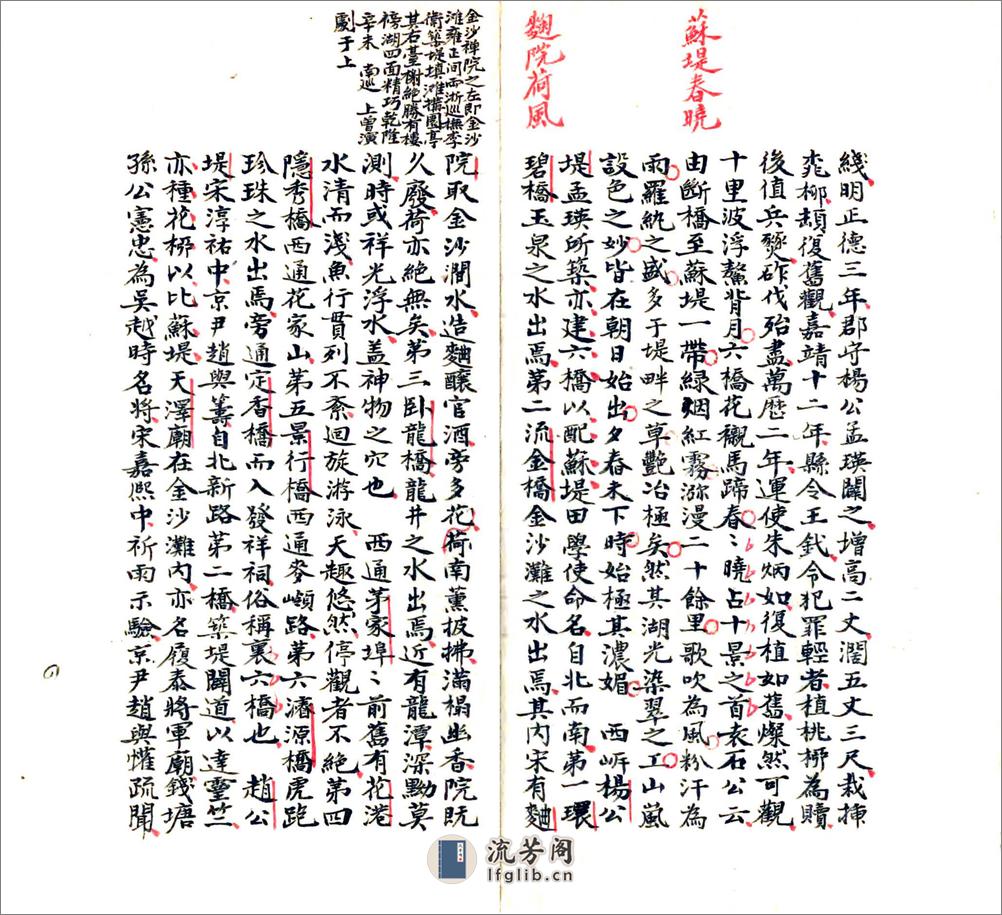 蘇堤春曉
麯院荷風
綫明正德三年郡守楊公孟瑛闢之增高二丈濶五丈三尺栽插
桃栁頡復舊觀嘉靖十二年縣令王釴令犯罪輕者植桃栁為贖
後值兵燹砟伐殆盡萬歷二年運使朱炳如復植如舊燦然可觀
十里波浮鰲背月六橋花襯馬蹄春〻曉占十景之首袁石公云
由斷橋至蘇堤一帶綠烟紅霧瀰漫二十餘里歌吹為風粉汗為
雨羅紈之盛多于堤畔之草艷冶極矣然其湖光染翠之工山嵐
設色之妙皆在朝日始出夕舂未下時始極其濃媚　西岍楊公
堤孟瑛所築亦建六橋以配蘇堤田學使命名自北而南第一環
碧橋玉泉之水出焉第二流金橋金沙灘之水出焉其內宋有麯
金沙禅院之左即金沙
灘雍正间而浙巡撫李
衛築堤填灘搆園亭
其右臺榭絶勝有樓
傍湖四面精巧乾隆
辛未　南巡　上曾演
劇于上
院取金沙澗水造麯釀官酒旁多花荷南薰披拂滿榻幽香院既
久廢荷亦絕無矣第三卧龍橋龍井之水出焉近有龍潭深黝莫
測時或祥光浮水盖神物之穴也　西通茅家埠〻前舊有花港
水清而淺魚行貫列不紊迴旋游泳天趣悠然停觀者不絕第四
隱秀橋西通花家山第五景行橋西通麥嶺路第六濬源橋虎跑
珍珠之水出焉旁通定香橋而入發祥祠俗稱裏六橋也　趙公
堤宋淳祐中京尹趙與籌自北新路第二橋築堤闢道以達靈竺
亦種花栁以比蘇堤天澤廟在金沙灘內亦名履泰將軍廟錢塘
孫公憲忠為吳越時名將宋嘉熙中祈雨示驗京尹趙與懽疏聞
流芳阁
lfglib.cn